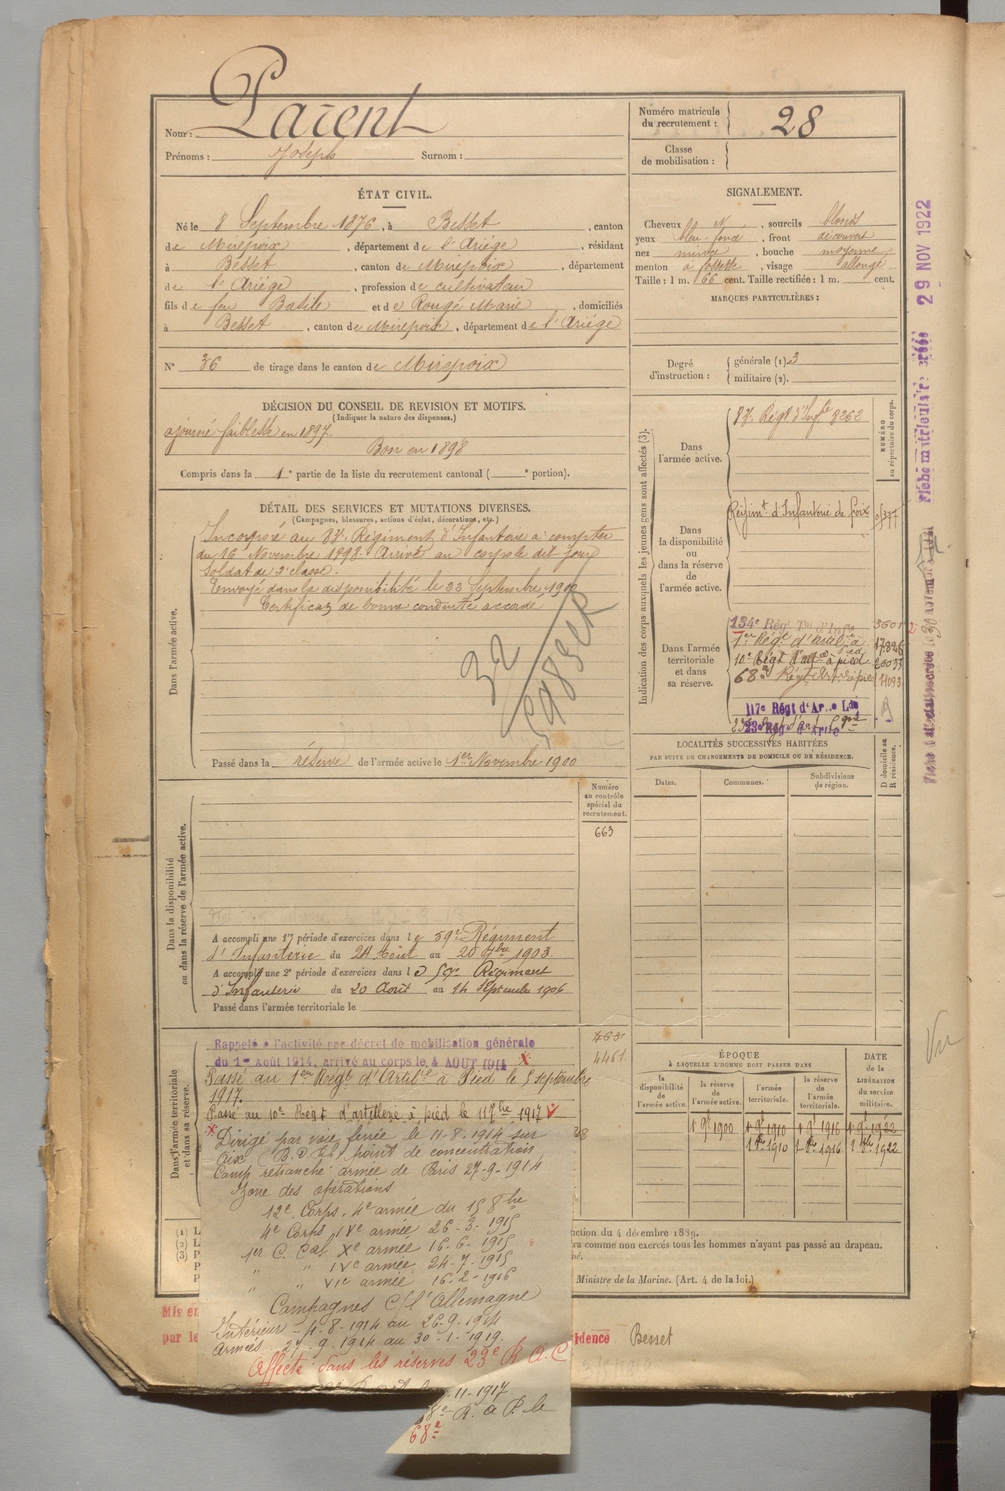 Nom : Parent
Prénoms : Joseph Surnom :
Numéro matricule du recrutement : 28
Classe de mobilisation :
ÉTAT CIVIL.
Né le 8 Septembre 1876, à Besset, canton
de Mirepoix, département de l'Ariége, résidant
à Besset, canton de Mirepoix, département
de l'Ariége, profession de cultivateur
fils de feu Basile et de Rougé Marie, domiciliés
à Besset, canton de Mirepoix, département de l'Ariége
N° 36 de tirage dans le canton de Mirepoix
SIGNALEMENT.
Cheveux bl N, sourcils blonds
yeux bleu foncé, front découvert
nez mince, bouche moyenne
menton à fossette, visage allongé
Taille : 1 m. 66 cent. Taille rectifiée : 1 m. cent.
MARQUES PARTICULIÈRES :
Degré d'instruction : générale (1). 3
militaire (2).
DÉCISION DU CONSEIL DE REVISION ET MOTIFS.
(Indiquer la nature des dispenses.)
ajourné faiblesse en 1897.
Bon en 1898
Compris dans la 1e partie de la liste du recrutement cantonal ( e portion).
DÉTAIL DES SERVICES ET MUTATIONS DIVERSES.
(Campagnes, blessures, actions d'éclat, décorations, etc.)
Dans l'armée active.
Incorporé au 83e Régiment d'Infanterie à compter
du 16 Novembre 1898. Arrivé au corps le dit jour
Soldat de 2e classe.
Envoyé dans la disponibilité le 22 Septembre 1900
Certificat de bonne conduite accordé
32
Passé dans la réserve de l'armée active le 1er Novembre 1900
Indication des corps auxquels les jeunes gens sont affectés (3).
NUMÉRO au répertoire du corps.
Dans l'armée active.
83e Régt d'Inf 3262
Dans la disponibilité ou dans la réserve de l'armée active.
Régimt d'Infanterie de Foix
Dans l'armée territoriale et dans sa réserve.
134e Régt Tal d'Infie
1er Régt d'artie à pied
10e Régt d'artie à pied
68e Régt Art à pied 11093
117e Régt d'Ar Ld
23e Rég d'Artie
LOCALITÉS SUCCESSIVES HABITÉES
PAR SUITE DE CHANGEMENTS DE DOMICILE OU DE RÉSIDENCE.
Dates.
Communes.
Subdivisions de région.
D domicile ou R résidence.
Dans la disponibilité ou dans la réserve de l'armée active.
Numéro au contrôle spécial du recrutement.
663
A accompli une 1re période d'exercices dans le 59e Régiment
d'Infanterie du 24 Août au 20 7bre 1903.
A accompli une 2e période d'exercices dans le 59e Régiment
d'Infanterie du 20 Août au 14 Septembre 1906
Passé dans l'armée territoriale le
Dans l'armée territoriale et dans sa réserve.
463
4461
Rappelé à l'activité par décret de mobilisation générale
du 1er Août 1914, arrivé au corps le 4 AOUT 1914 X
Passé au 1er Régt d'Artie à Pied le 5 septembre
1917.
Passé au 10e Régt d'artillerie à pied le 11 7bre 1917
X Dirigé par voie ferrée le 11-8-1914 sur
point de concentration
Camp retranché armée de Paris 27-9-1914
Zone des opérations
12e Corps, 4e armée du 15 8bre
4e Corps IVe armée 26-3-1915
1er C. Cal Xe armée 16-6-1915
" " IVe armée 24-7-1915
" " VIe armée 16-2-1916
Campagnes C/ l'Allemagne
Intérieur 4-8-1914 au 26-9-1914
Armées 27-9-1914 au 30-1-1919.
Affecté dans les réserves 23e R. A. C.
11-1917
68e R. à P. le
68e
ÉPOQUE
À LAQUELLE L'HOMME DOIT PASSER DANS
la disponibilité de l'armée active.
la réserve de l'armée active.
l'armée territoriale.
la réserve de l'armée territoriale.
DATE de la LIBÉRATION du service militaire.
1 9b 1900
1 9b 1910
1 9b 1916
1 9b 1922
1 8bre 1910
1 8bre 1916
1 8bre 1922
(1)
(2)
(3)
ction du 4 décembre 1889.
ra comme non exercés tous les hommes n'ayant pas passé au drapeau.
Ministre de la Marine. (Art. 4 de la loi.)
Mis en
par le
idence Besset
29 NOV 1922
Vu